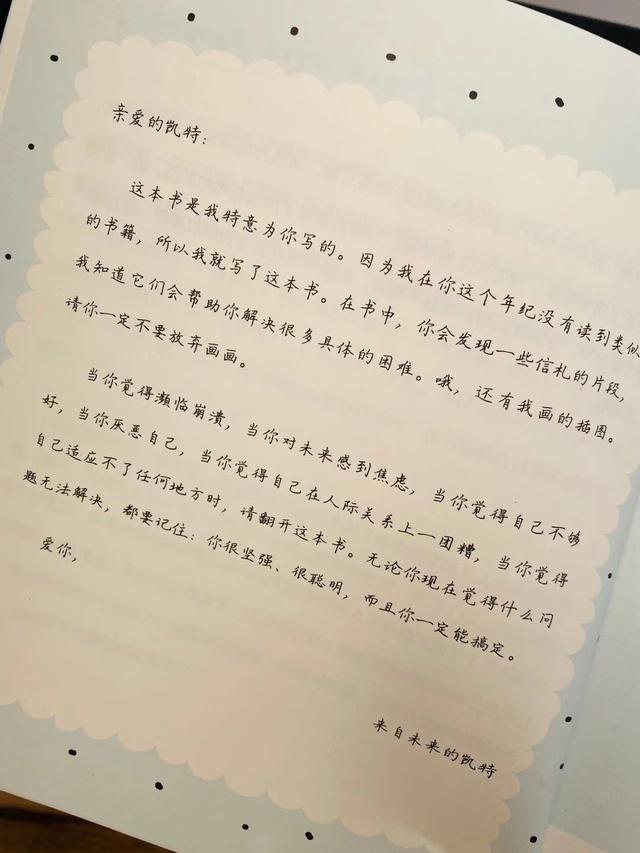 亲爱的凯特：
这本书是我特意为你写的。因为我在你这个年纪没有读到类似
的书籍，所以我就写了这本书。在书中，你会发现一些信札的片段，
我知道它们会帮助你解决很多具体的困难。哦，还有我画的插图。
请你一定不要放弃画画。
当你觉得濒临崩溃，当你对未来感到焦虑，当你觉得自己不够
好，当你厌恶自己，当你觉得自己在人际关系上一团糟，当你觉得
自己适应不了任何地方时，请翻开这本书。无论你现在觉得什么问
题无法解决，都要记住：你很坚强、很聪明，而且你一定能搞定。
爱你，
来自未来的凯特